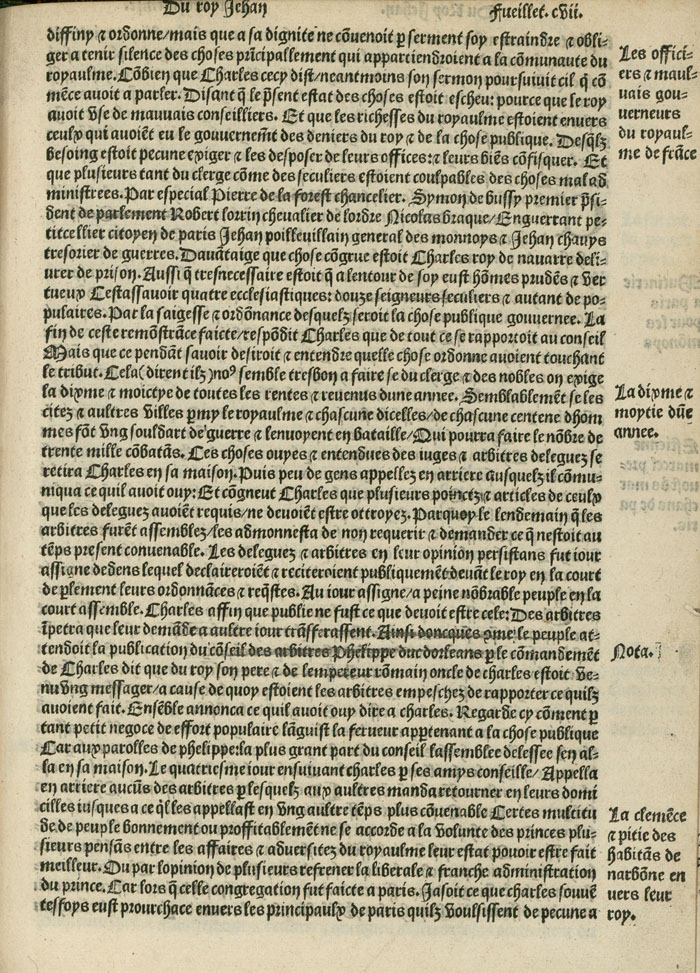 Du roy Jehan
Fueillet. cvii.
diffiny ⁊ ordonne/mais que a sa dignite ne cõuenoit ꝑ serment soy estraindre ⁊ obli-
ger a tenir silence des choses prĩcipallement qui appartiendroient a la cõmunaute du
royaulme. Cõbien que Charles cecy dist/neantmoins son sermon poursuiuit cil q̃ cõ
mẽce auoit a parler. Disant q̃ le p̃sent estat des choses estoit escheu: pource que le roy
auoit vse de mauuais conseilliers. Et que les richesses du royaulme estoient enuers
ceulx qui auoiẽt eu le gouuernem̃t des deniers du roy ⁊ de la chose publique. Desq̃lz
besoing estoit pecune exiger ⁊ les desposer de leurs offices: ⁊ leurs biẽs cõfisquer. Et
que plusieurs tant du clerge cõme des seculiers estoient coulpables des choses mal ad
ministrees. Par especial Pierre de la forest chancelier. Symon de bussy premier p̃si-
dent de parlement Robert lorrin cheualier de lordre Nicolas braque/Enguerrant pe-
titcellier citoyen de paris Jehan poilleuillain general des monnoys ⁊ Jehan chauys
tresorier de guerres. Dauãtaige que chose cõgrue estoit Charles roy de nauarre deli-
urer de prison. Aussi q̃ tresnecessaire estoit q̃ a lentour de soy eust hõmes prudẽs ⁊ ver
tueux Cestassauoir quatre ecclesiastiques: douze seigneurs seculiers ⁊ autant de po-
pulaires. Par la saigesse ⁊ ordõnance desquelz seroit la chose publique gouuernee. La
fin de ceste remõstrãce faicte/respõdit Charles que de tout ce se rapportoit au conseil
Mais que ce pendãt sauoir desiroit ⁊ entendre quelle chose ordonne auoient touchant
le tribut. Cela (dirent ilz) noꝰ semble tresbon a faire se du clerge ⁊ des nobles on exige
la dixme ⁊ moictye de toutes les rentes ⁊ reuenus dune annee. Semblablemẽt se les
citez ⁊ aultres villes ꝑmy le royaulme ⁊ chascune dicelles/de chascune centene dhom
mes fõt vng souldart de guerre ⁊ lenuoyent en bataille/Qui pourra faire le nõbre de
trente mille cõbatãs. Ces choses ouyes ⁊ entendues des iuges ⁊ arbitres deleguez se
retira Charles en sa maison. Puis peu de gens appellez en arriere ausquelz il cõmu-
niqua ce quil auoit ouy: Et cõgneut Charles que plusieurs poinctz ⁊ articles de ceulx
que les deleguez auoiẽt requis/ne deuoiẽt estre ottroyez. Parquoy le lendemain q̃ les
arbitres furẽt assemblez/les admonnesta de non requerir ⁊ demander ce q̃ nestoit au
tẽps present conuenable. Les deleguez ⁊ arbitres en leur opinion persistans fut iour
assigne dedens lequel declaireroiẽt ⁊ reciteroient publiquemẽt deuãt le roy en la court
de ꝑlement leurs ordonnãces ⁊ req̃stes. Au iour assigne/a peine nõbrable peuple en la
court assemble. Charles affin que publie ne fust ce que deuoit estre cele: Des arbitres
ĩpetra que leur demãde a aultre iour trãsferassent. Ainsi doncques q̃me le peuple at-
tendoit la publication du cõseil des arbitres Phelippe duc dorleans ꝑ le cõmandemẽt
de Charles dit que du roy son pere ⁊ de lempereur rõmain oncle de charles estoit ve-
nu vng messager/a cause de quoy estoient les arbitres empeschez de rapporter ce quilz
auoient fait. Ensẽble annonca ce quil auoit ouy dire a charles. Regarde cy cõment ꝑ
tant petit negoce de effort populaire lãguist la ferueur apꝑtenant a la chose publique
Car aux parolles de phelippe: la plus grant part du conseil lassemblee delessee sen al-
la en sa maison. Le quatriesme iour ensuiuant charles ꝑ ses amys conseille/ Appella
en arriere aucũs des arbitres ꝑ lesquelz aux aultres manda retourner en leurs domi
cilles iusques a ce q̃l les appellast en vng aultre tẽps plus cõuenable Certes multitu
de de peuple bonnement ou proffitablemẽt ne se accorde a la volunte des princes plu-
sieurs pensãs entre les affaires ⁊ aduersitez du royaulme leur estat pouoir estre fait
meilleur. Ou par lopinion de plusieurs refrener la liberale ⁊ franche administration
du prince. Car lors q̃ celle congregation fut faicte a paris. Jasoit ce que charles souuẽ
tesfoys eust prourchace enuers les principaulx de paris quilz voulsissent de pecune a
Les offici-
ers ⁊ maul-
uais gou-
uerneurs
du royaul-
me de frãce
La dixme ⁊
moytie dũe
annee.
Nota.
La clemẽce
⁊ pitie des
habitãs de
narbõne en
uers leur
roy.